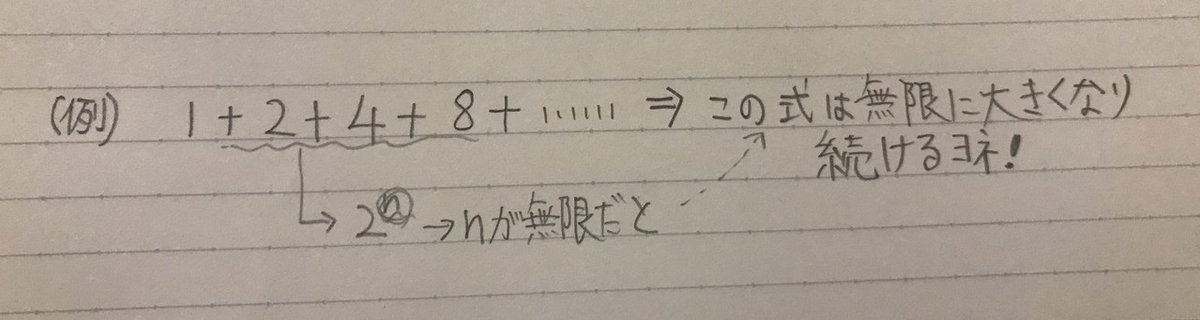 (例) 1+2+4+8+...... ⇒ この式は無限に大きくなり
続けるヨネ!
↳ 2ⁿ → nが無限だと